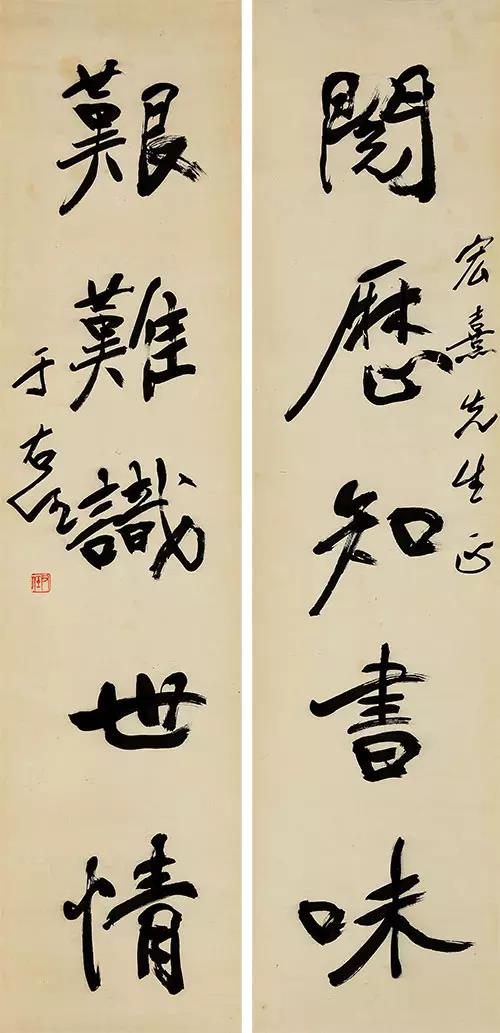 宏熹先生正
閱歷知書味
艱難識世情
于右任
右任